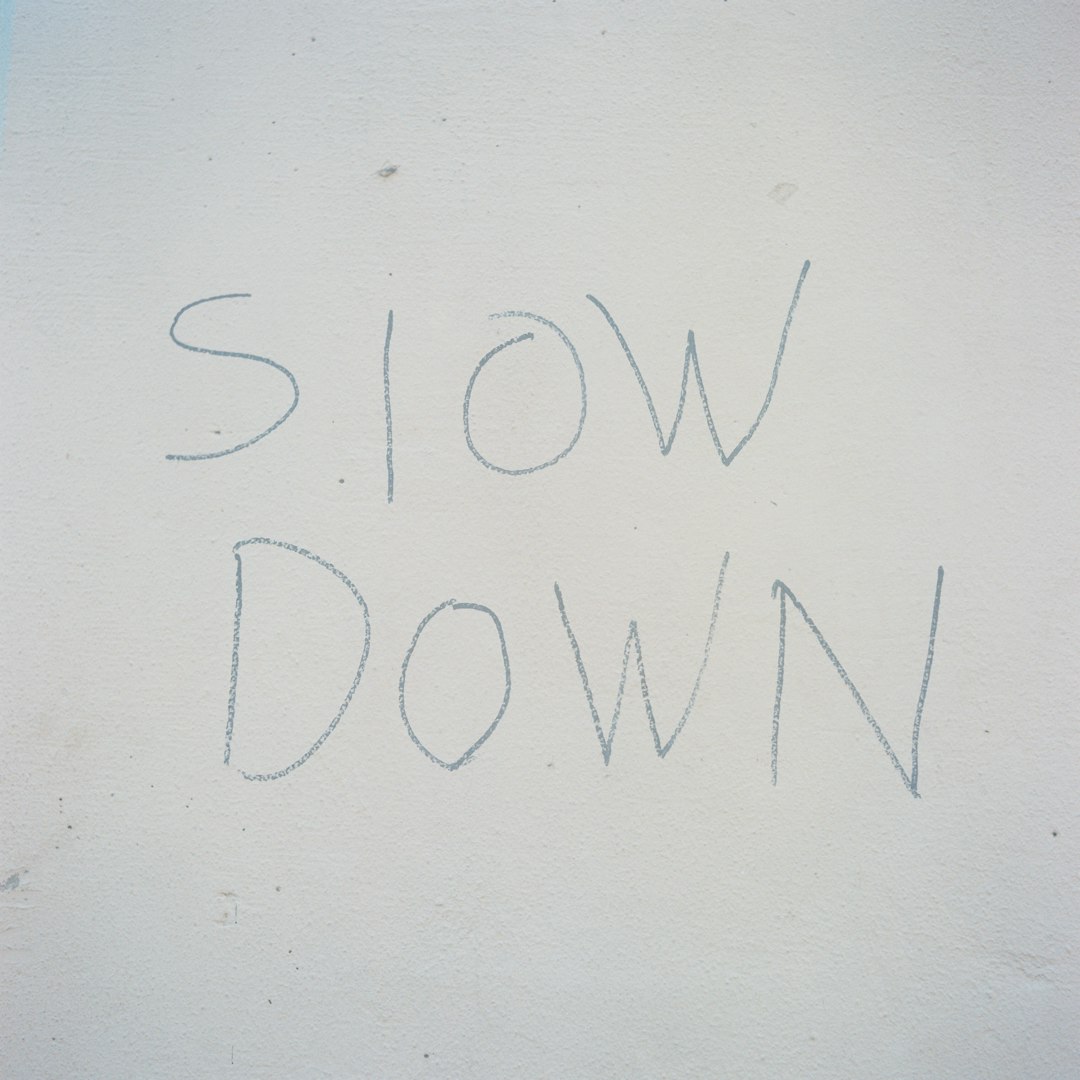 SlOW
DOWN